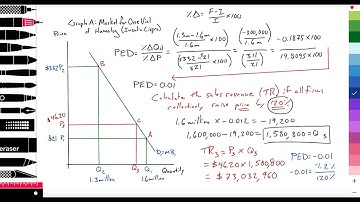 Graph A: Market for One Vial
of Humalog (Insulin Lispro)
Price
$332 P₂
B
$46.20
P₃
C
$21 P₁
A
D=MB
Q₂
Q₃
Q₁
Quantity
1.3 million
1.6 million
%Δ = F-I / I ×100
PED = %ΔQd / %ΔP
(1.3m - 1.6m / 1.6m) ×100
(332-21 / 21) ×100
(-300,000 / 1.6m) ×100
(311 / 21) ×100
-0.1875 ×100
14.8095 ×100
PED = -0.01
Calculate the sales revenue (TR) if all firms
collectively raise price by 120%
1.6 million × -0.012 = -19,200
1,600,000 - 19,200 = 1,580,800 = Q₃
TR₃ = P₃ × Q₃
= $46.20 × 1,580,800
= $73,032,960
PED = -0.01
-0.01 = -1.2% / 120%